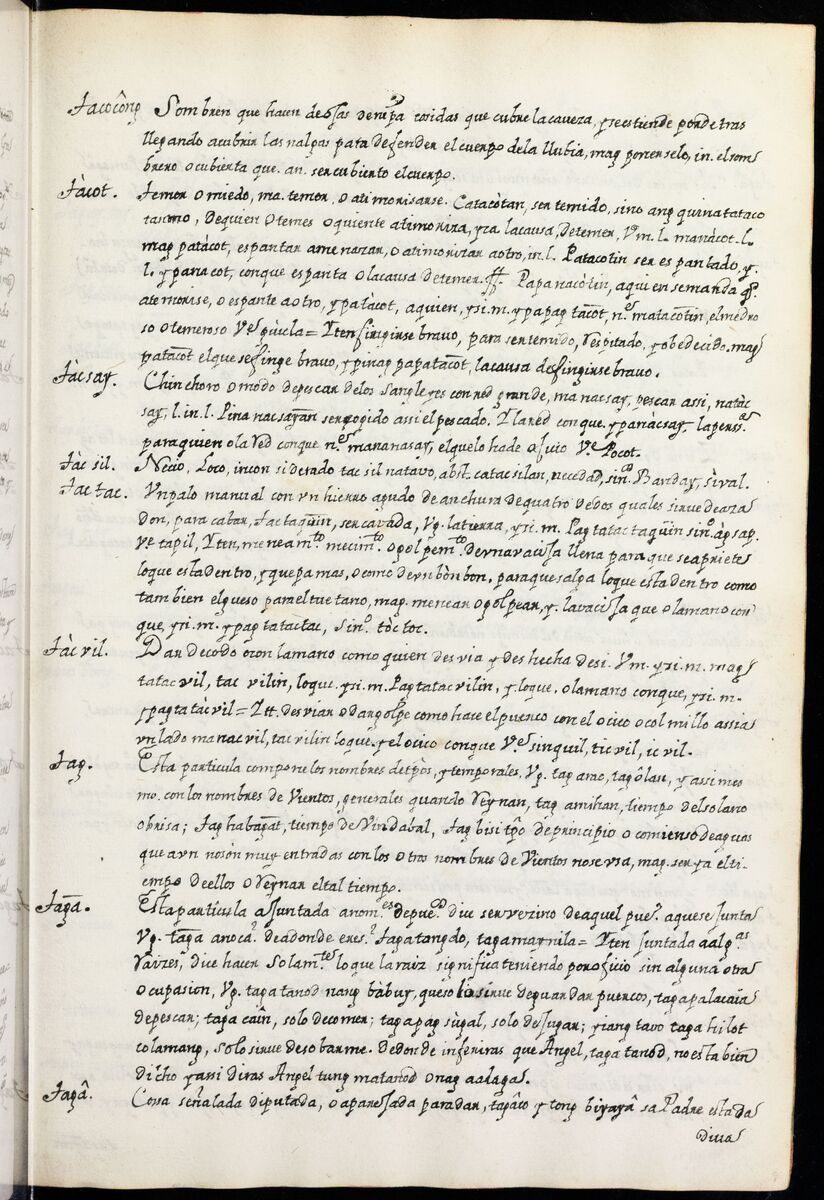 Tacocông Sombrero que hacen de ojas de nipa cosidas que cubre la caveza, y se estiende por detras
llegando a cubrir las nalgas para defender el cuerpo de la llubia, mag ponerselo, in. el som
brero o cubierta que. an. ser cubierto el cuerpo.
Tàcot. Temor o miedo, ma. temer, o atimorisarse. Catacòtan, ser temido, sino ang quinatataco
tanmo, de quien o temes o quiente atimoriza, yca. la causa, de temer, Vm. l. manàcot. l.
mag patàcot, espantar amenazar, o atimorizar a otro, in. l. Patacotin ser espantado, y.
l. ypanacot, con que espanta o la causa de temer. Papanacòtin, aquien se manda q.e
atemorise, o espante a otro, ypatàcot, a quien, ysi. m. ypapag tacot, n.s matacotin, el medro
so o temeroso Ve pùcla = Yten fingirse bravo, para ser temido, respetado, y obedecido. mag
patacot el que se finge bravo, ypinag papatacot, la causa de fingirse bravo.
Tàcsay. Chinchoro o modo de pescar de los Sangleyes con red grande, manacsay, pescar assi, natàc
say, l. in. l. Pinanacsayan ser cogido assi el pescado. Y la red con que. ypanàcsay. la pers.a
para quien o la red con que n.s mananacsay, el que lo ha de oficio Ve Pocot.
Tàc sil. Necio, Loco, inconsiderado tac sil na tavo, abst. catac silan, necedad, sin.o Banday, sìval.
Tac tac. Vn palo manual con vn hierro agudo de anchura de quatro dedos quales sirve de aza
don, para cabar, Tactaguin, ser cavada, Vg. la tierra, ysi. m. Pagtatactaguin sin.o àgsap.
Ve tapil, Yten, meneam.to mecim.to o golpem.to de vna vacija llena para que se apriete
lo que esta dentro, y quepa mas, o como de vn bònbon, para que salga lo que esta dentro como
tambien el queso para el tuetano, mag. menear o golpear, y. la vacija que o la mano con
que, ysi. m. ypagtatactac, Sin.o toctoc.
Tàc vil. Dar de codo o con la mano como quien desvia y deshecha desi. Vm. ysi. m. mag
tatac vil, tac vilin, lo que. ysi. m. Pagtatac vilin, y. lo que. o la mano con que, ysi. m.
ypagtatàc vil = Ytt. desviar o dar golpe como hace el puerco con el ocico o colmillo assi a
vn lado manacvil, tac vilin lo que. y el ocico con que Ve singuil, tic vil, ic vil.
Tag. Esta particula compone los nombres de tpos, y temporales. Vg. tag arao, tagôlan, y assi mes
mo. con los nombres de Vientos, generales quando Reynan, tag amihan, tiempo del solano
o brisa; Tag habagat, tiempo de Vindabal, Tag bisi tpo de principio o comienso de aguas
que aun no son muy entradas con los otros nombres de Vientos no se vsa, mag. ser ya el ti-
empo de ellos o Reynar el tal tiempo.
Tagà. Esta partìcula ajuntada a nom.es de pue.os dice ser vezino de aquel pue.o a que se junta
Vg. taga anoca? de a donde eres? Taga tangdo, taga maynila = Yten juntada a alg.as
Raizes, dice hacer Solam.te lo que la raiz significa teniendo por oficio sin alguna otra
ocupasion, Vg. taga tanod nang bàbuy, que solo sirve de guardar puercos, taga palacaia
de pescar; taga caìn, solo de comer; taga pag sùgal, solo de jugar; yiang tavo taga hilot
colamang, Solo sirve de sobarme. de donde inferiras que Angel, taga tanod, no esta bien
dicho y assi diras Angel tung matanod o nag aalaga.
Tagâ. Cossa señalada diputada, o aparejada para dar, tagâco ytong biyayâ sa Padre esta da
diua